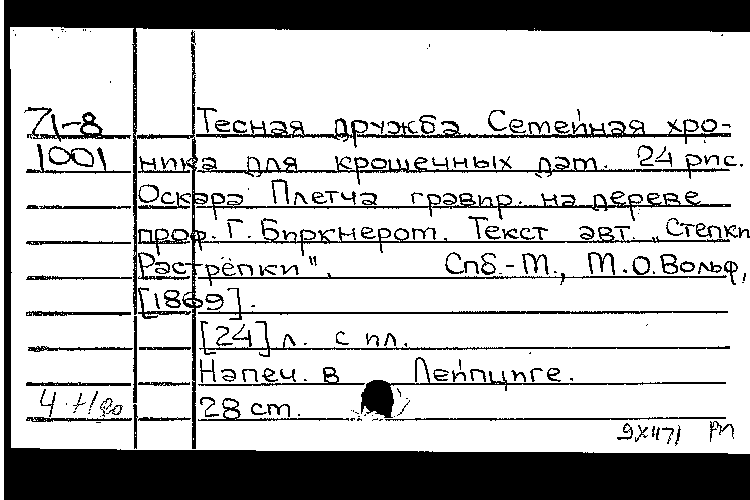 71-8 Тесная дружба Семейная хро-
1001 ника для крошечных дэт. 24 рис.
Оскара Плетча гравир. на дереве
проф. Г. Биркнером. Текст авт. „Степки
Растрёпки". Спб.-М., М.О.Вольф,
[1869].
[24] л. с пл.
Напеч. в Лейпциге.
28 см.